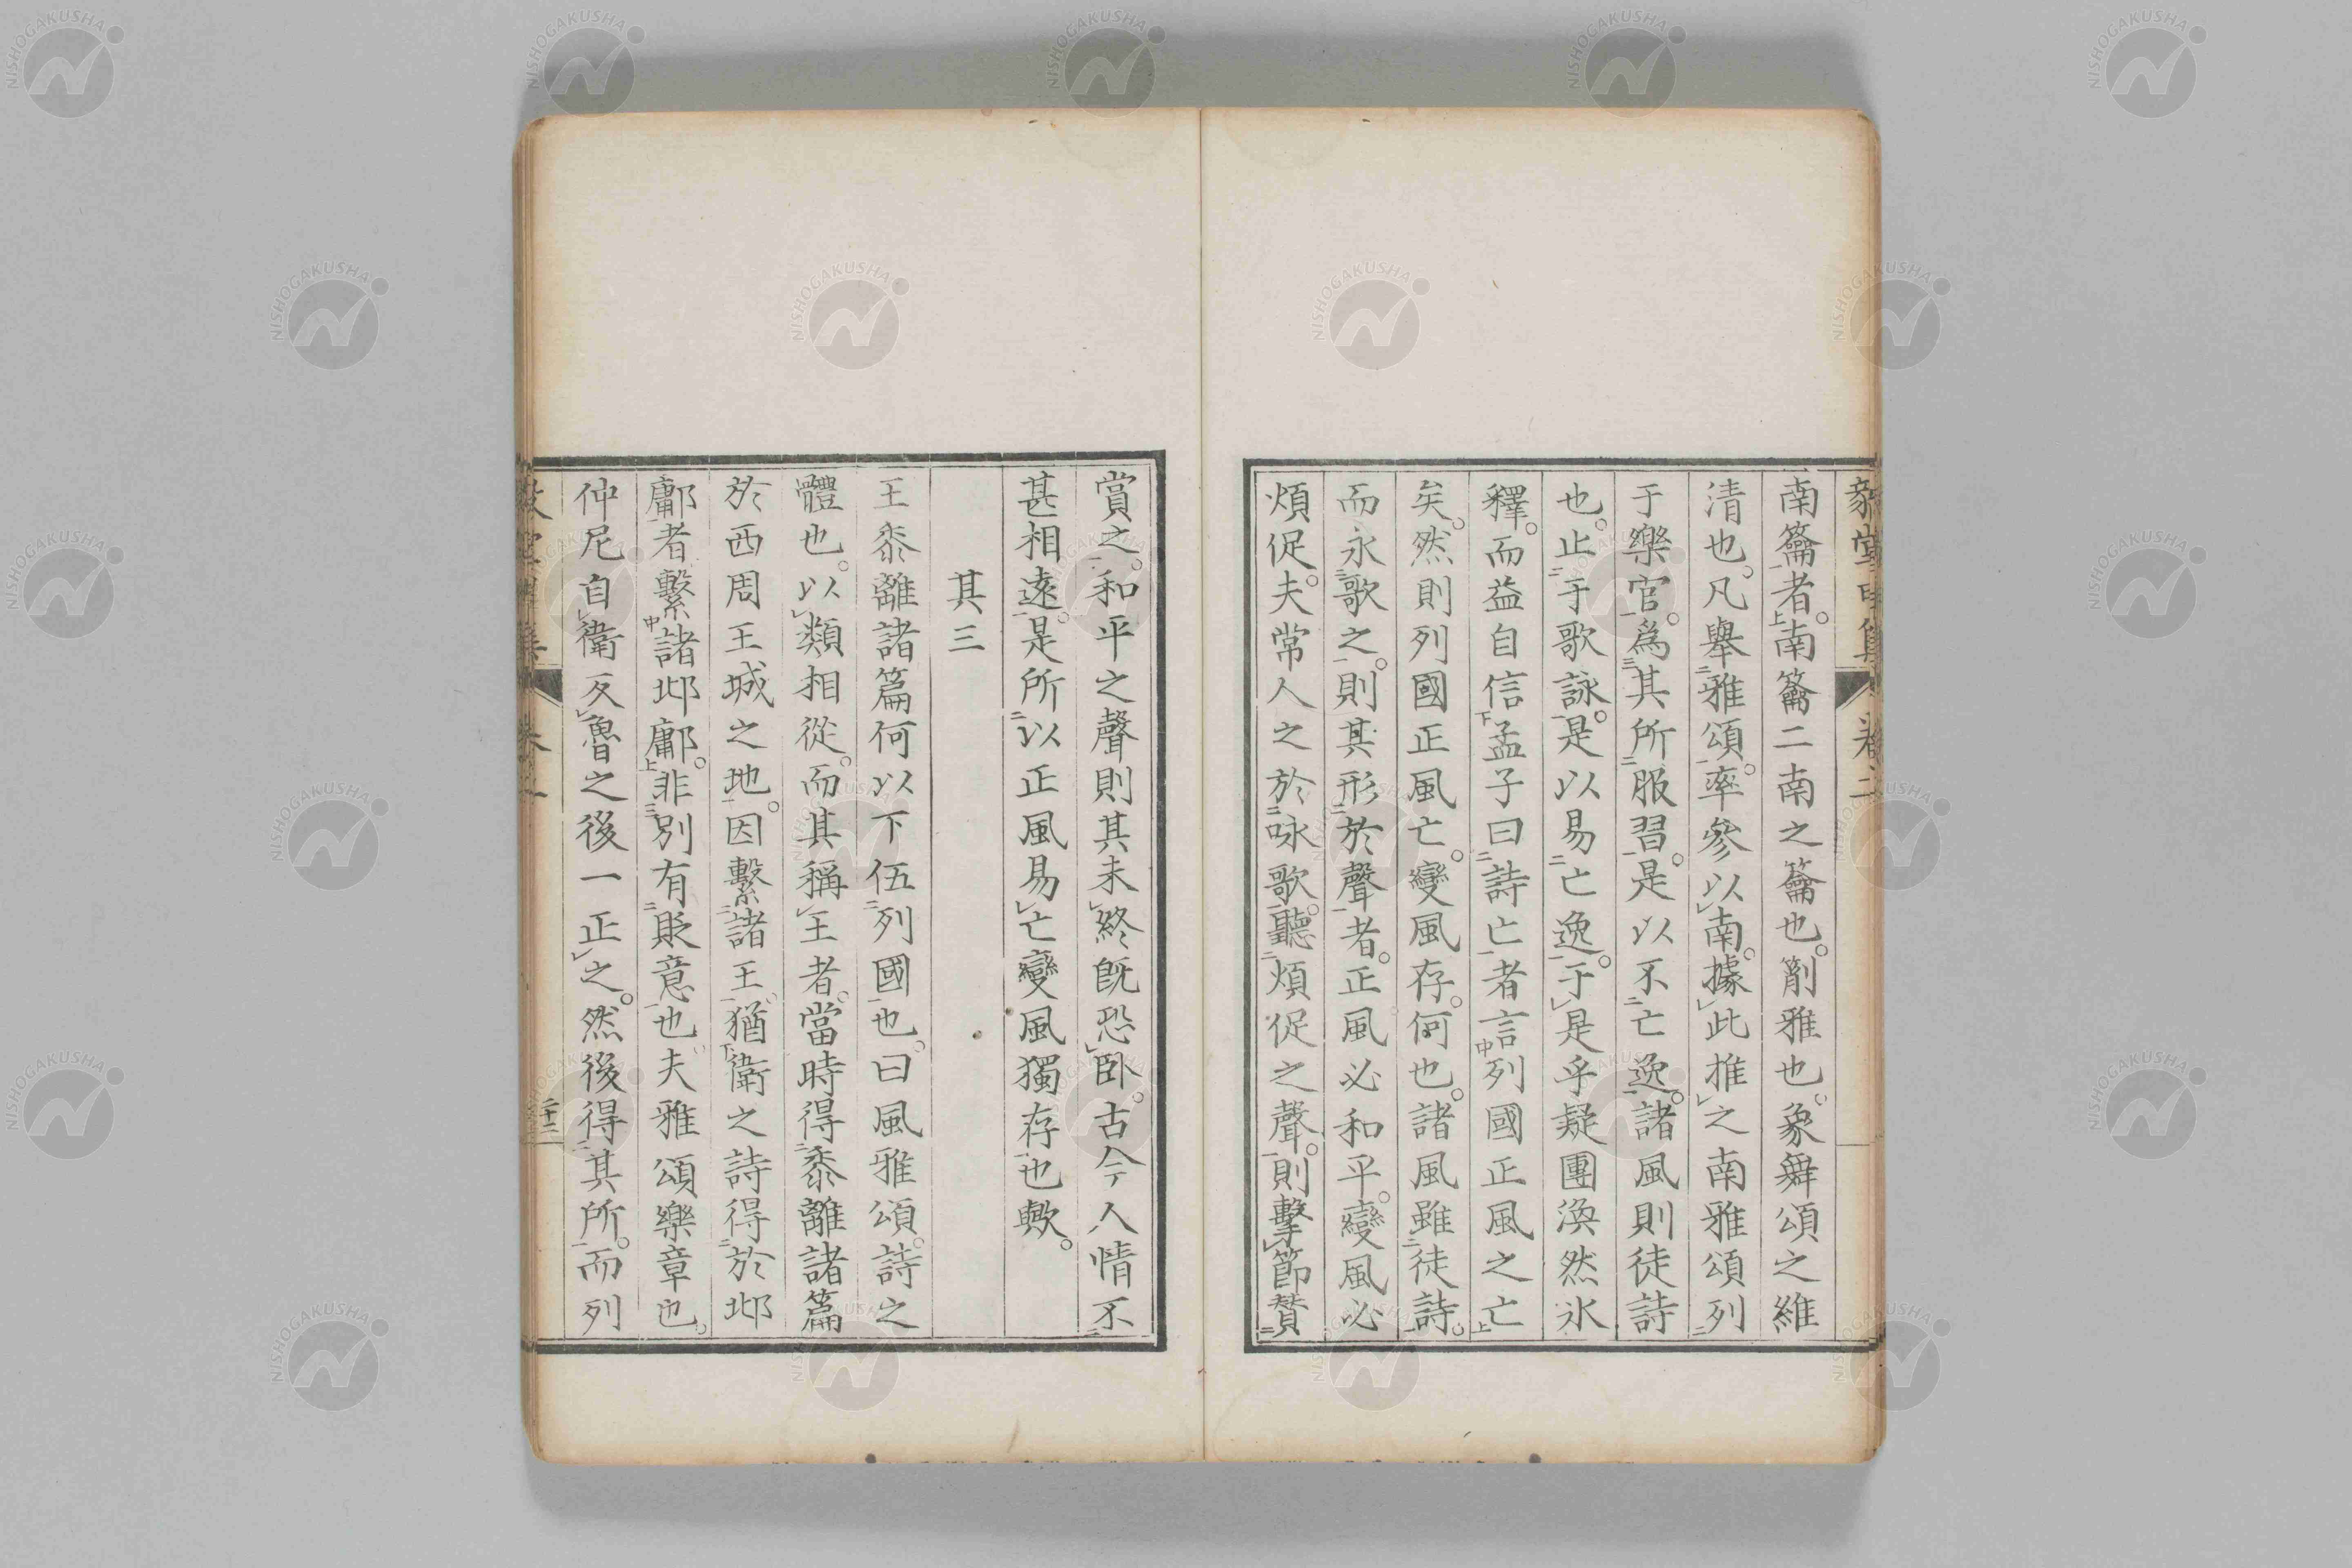 南籥者。南籥二南之籥也。劀雅也。象舞頌之維
清也。凡舉雅頌。率參以南。據此推之南雅頌列
于樂官。爲其所服習。是以不亡逸。諸風則徒詩
也。止于歌詠。是以易亡逸。于是乎疑團渙然氷
釋。而益自信孟子曰詩亡者言列國正風之亡
矣。然則列國正風亡。變風存。何也。諸風雖徒詩。
而永歌之。則其形於聲者。正風必和平。變風必
煩促。夫常人之於咏歌。聽煩促之聲。則擊節贊
賞之。和平之聲則其未終既恐卧。古今人情不
甚相遠。是所以正風易亡變風獨存也歟。
其三
王黍離諸篇何以下伍列國也。曰風雅頌。詩之
體也。以類相從。而其稱王者。當時得黍離諸篇
於西周王城之地。因繫諸王。猶衛之詩得於邶
鄘者繫諸邶鄘。非別有貶意也。夫雅頌樂章也。
仲尼自衛反魯之後一正之。然後得其所。而列
NISHOGAKUSHA